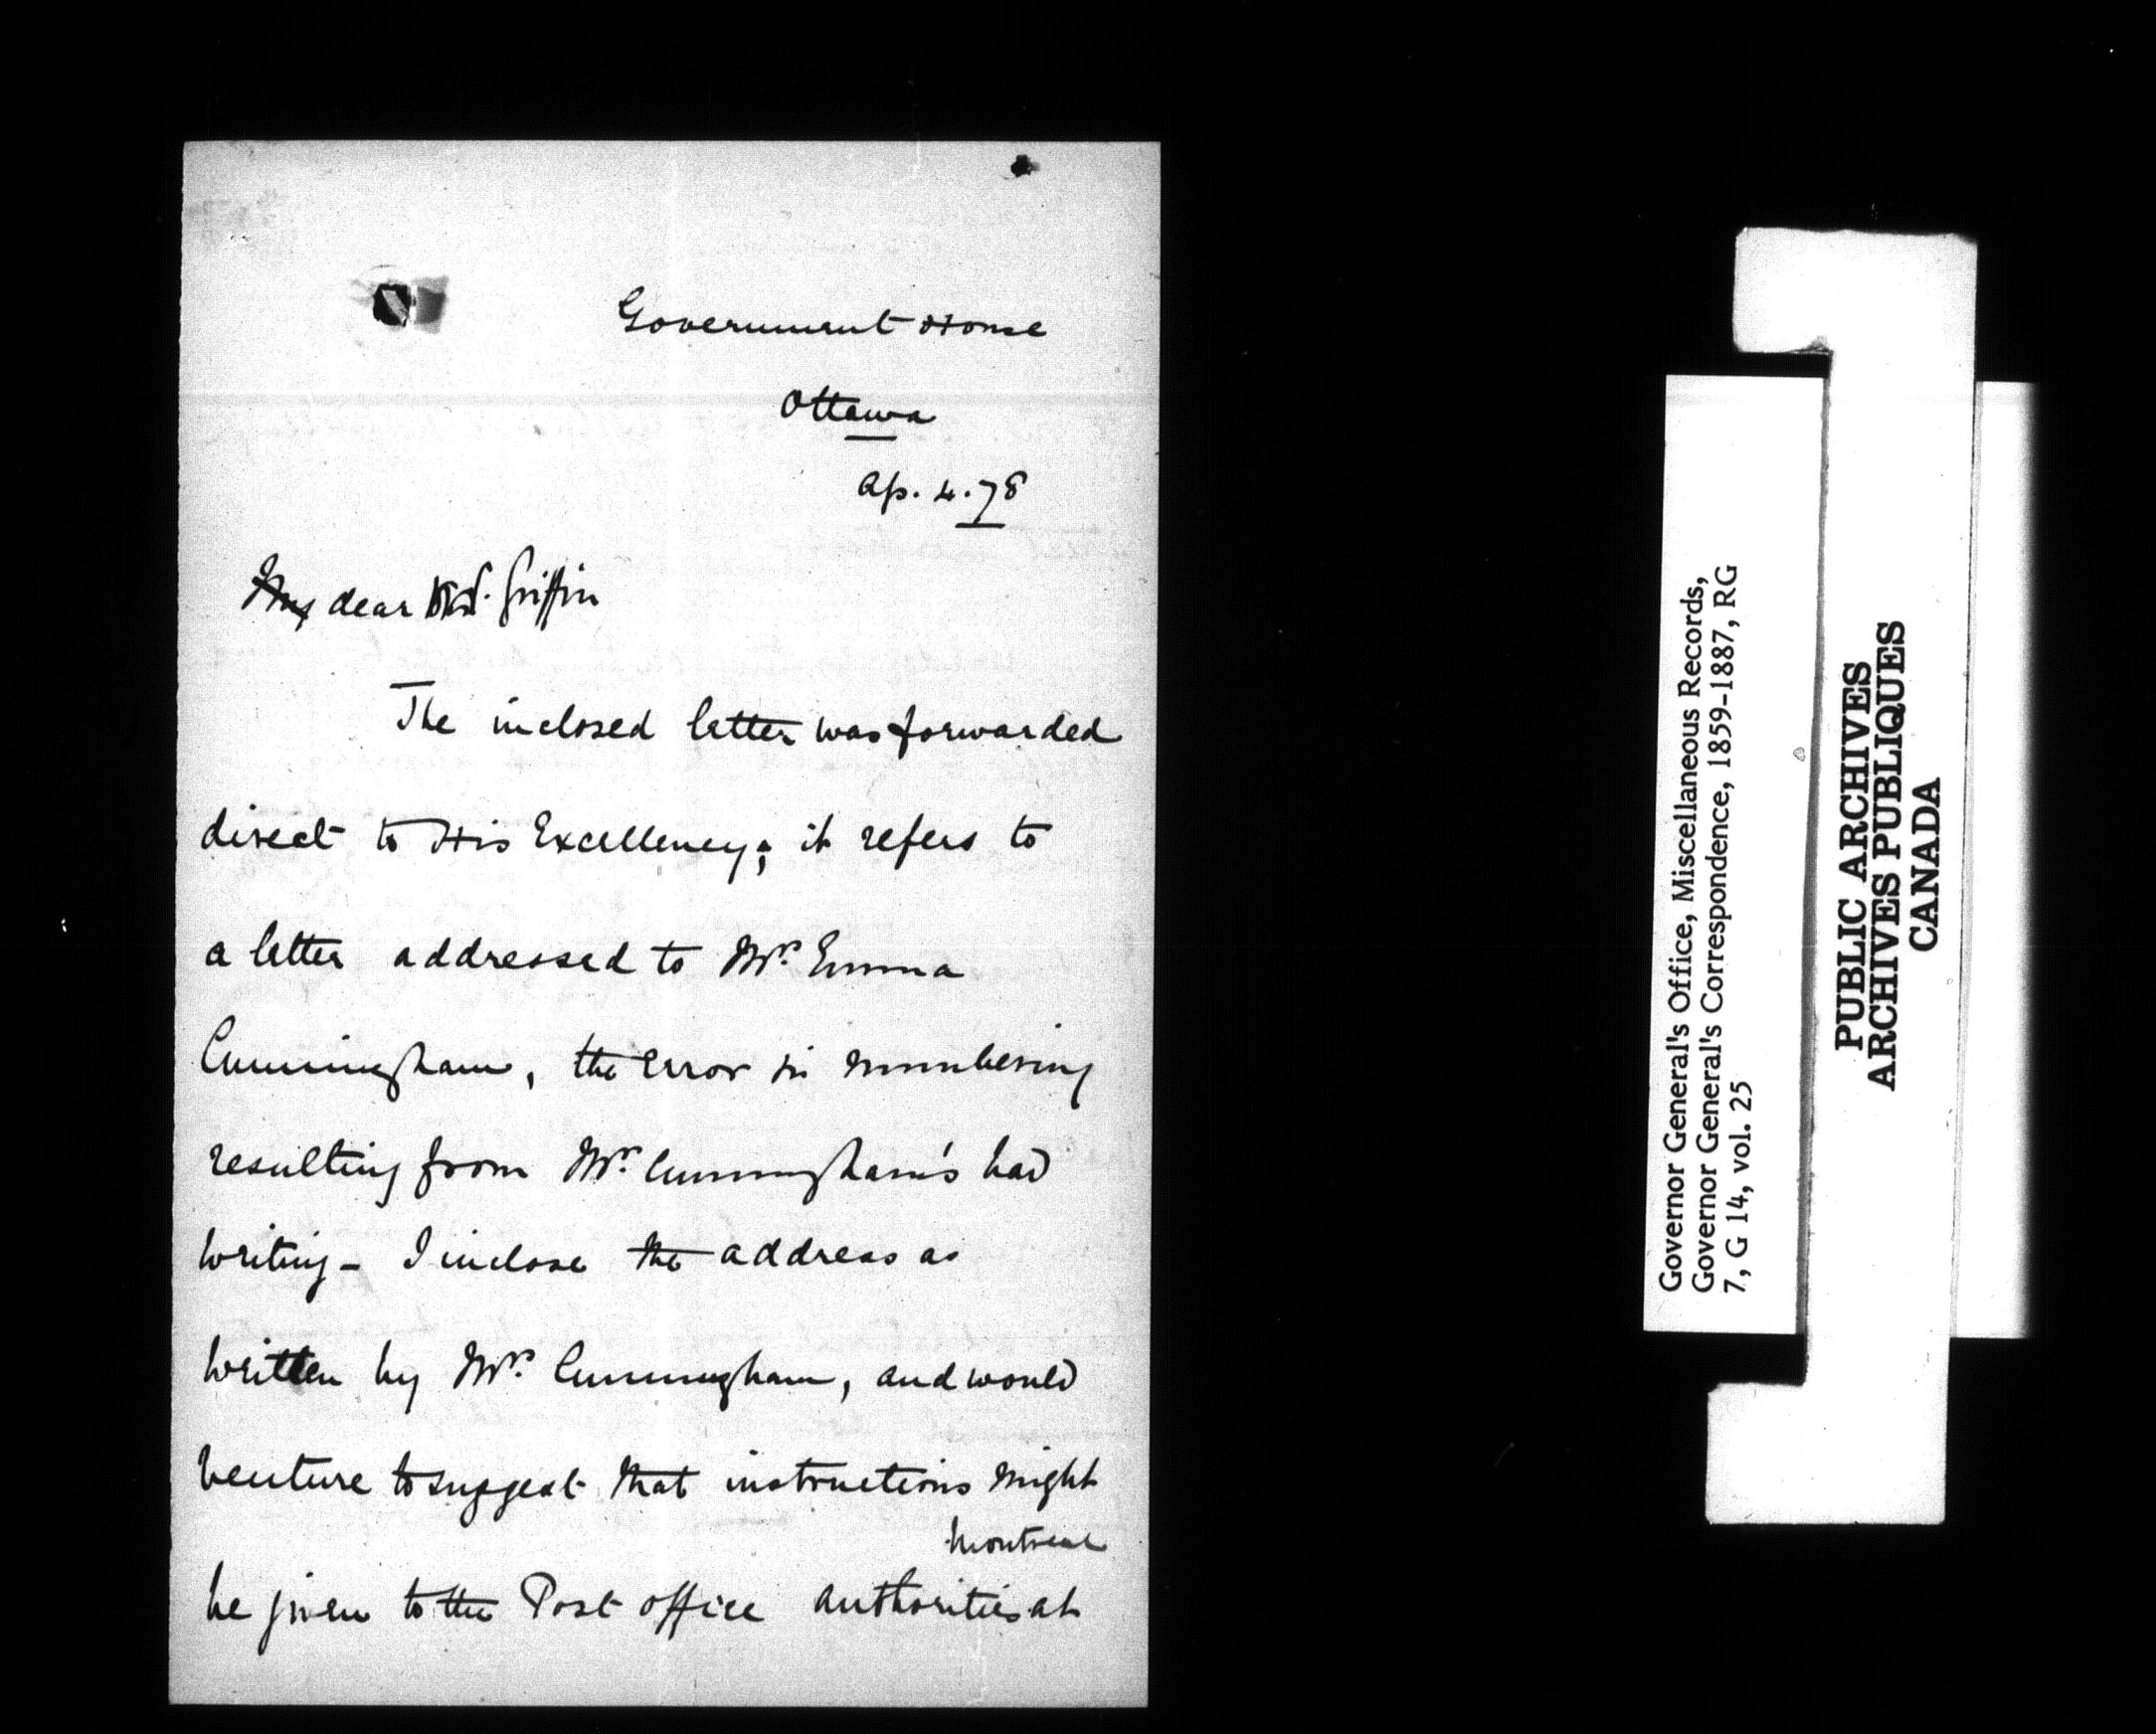 Government House
Ottawa
Ap. 4. 78
My dear Griffin
The inclosed letter was forwarded
direct to His Excellency; it refers to
a letter addressed to Mrs. Emma
Cunningham, the error in numbering
resulting from Mrs. Cunningham's bad
writing - I inclose the address as
written by Mrs. Cunningham, and would
venture to suggest that instructions might
Montreal
be given to the Post office authorities at
Governor General's Office, Miscellaneous Records,
Governor General's Correspondence, 1859-1887, RG
7, G 14, vol. 25
PUBLIC ARCHIVES
ARCHIVES PUBLIQUES
CANADA